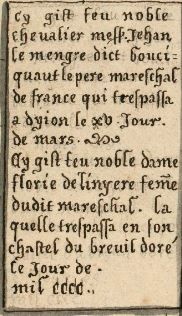 Cy gist feu noble
chevalier mess. Jehan
le mengre dict bouci=
quaut le pere mareschal
de france qui trespassa
a dyion le xv Jour.
de mars.
Cy gist feu noble dame
florie de linyere femē
dudit mareschal. la
quelle trespassa en son
chastel du breuil doré
le Jour de .
mil cccc..